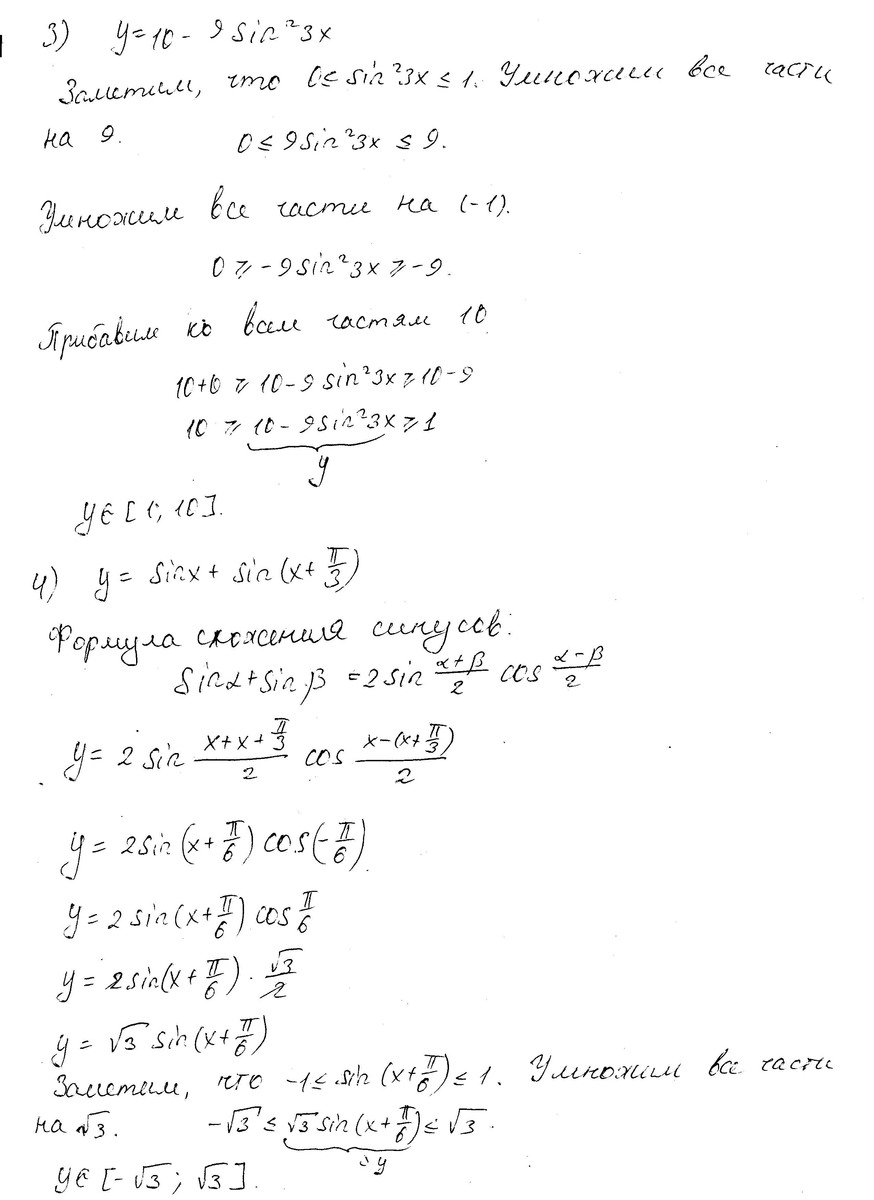 3) y = 10 - 9 sin²3x
Заметим, что 0 ≤ sin²3x ≤ 1. Умножим все части
на 9. 0 ≤ 9 sin²3x ≤ 9.
Умножим все части на (-1).
0 ⩾ -9 sin²3x ⩾ -9.
Прибавим ко всем частям 10
10+0 ⩾ 10-9 sin²3x ⩾ 10-9
10 ⩾ 10-9 sin²3x ⩾ 1
y
y ∈ [1; 10].
4) y = sinx + sin(x + π/3)
Формула сложения синусов:
sinα + sinβ = 2 sin (α+β)/2 cos (α-β)/2
y = 2 sin (x+x+π/3)/2 cos (x-(x+π/3))/2
y = 2 sin(x + π/6) cos(-π/6)
y = 2 sin(x + π/6) cos π/6
y = 2 sin(x + π/6) · √3/2
y = √3 sin(x + π/6)
Заметим, что -1 ≤ sin(x + π/6) ≤ 1. Умножим все части
на √3. -√3 ≤ √3 sin(x + π/6) ≤ √3.
y
y ∈ [-√3; √3].